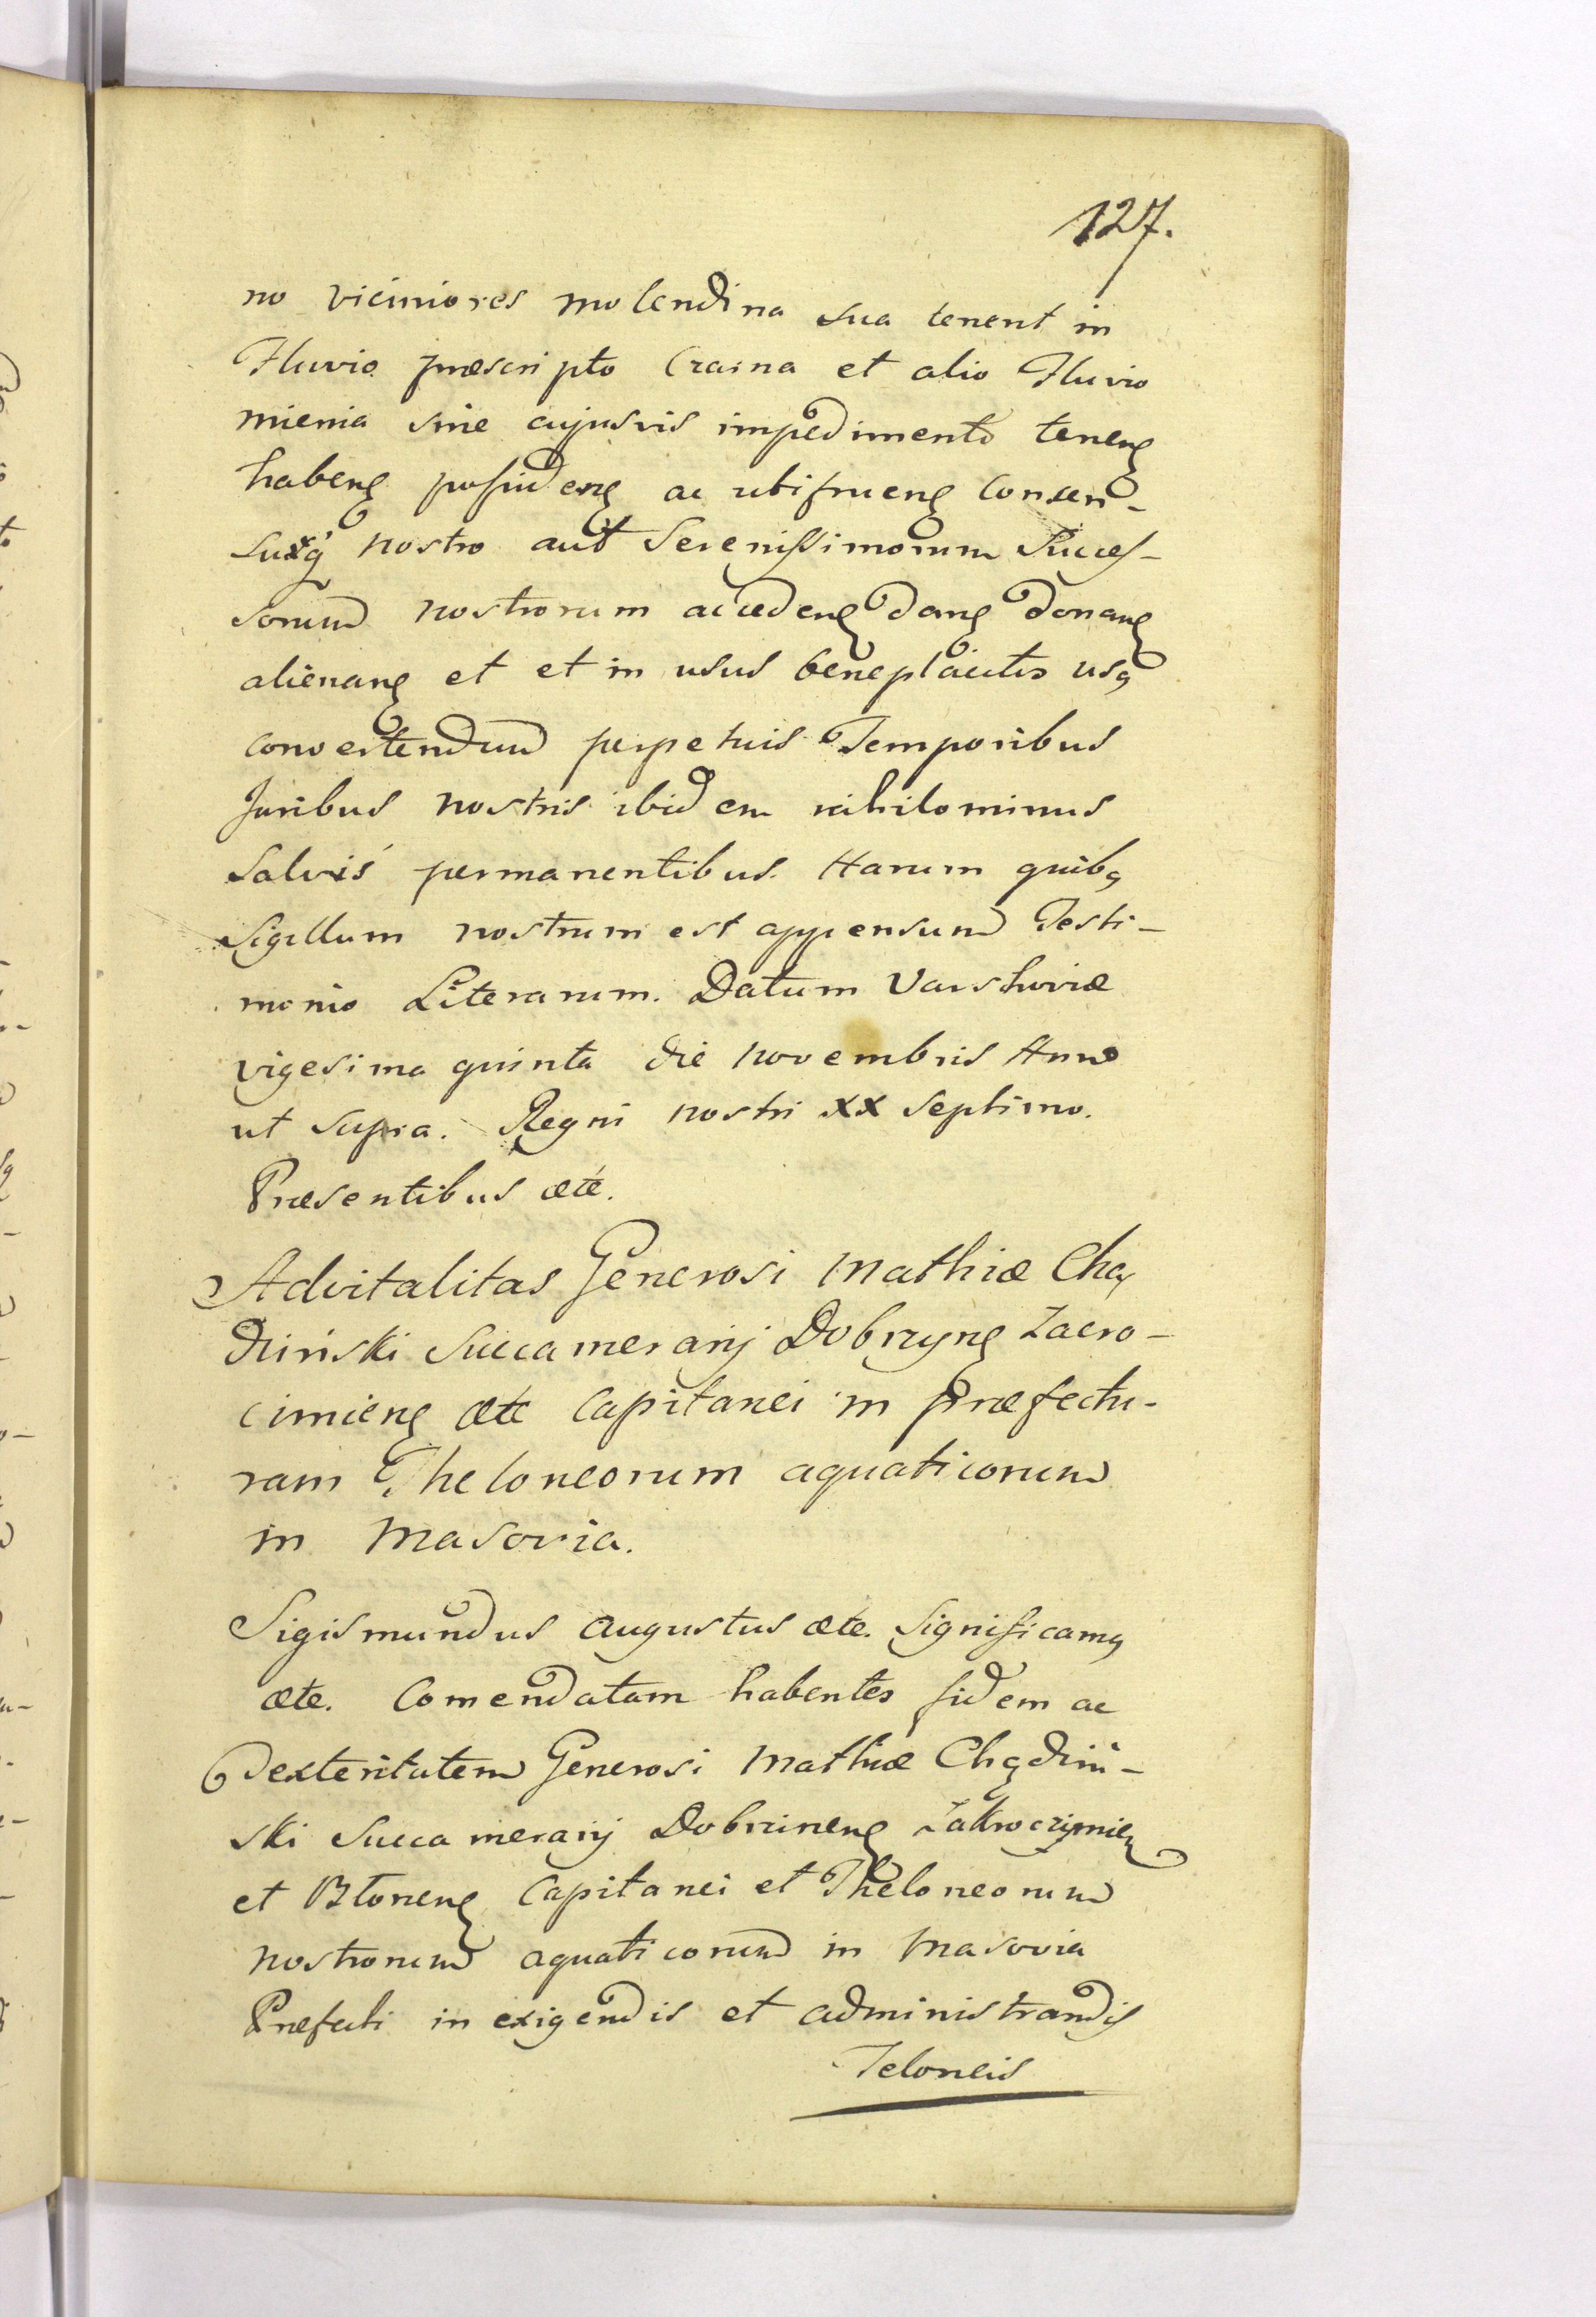 127.
no viciniores molendina sua tenent in
Fluvio præscripto Crasna et alio Fluvio
mienia sine cujusvis impedimento tenenꝫ
habenꝫ possidenꝫ ac utifruenꝫ Consen-
suꝙ nostro aut Serenissimorum Succes-
sorum nostrorum accedenꝫ danꝫ donanꝫ
alienanꝫ et et in usus beneplacitos usꝙ
convertendum perpetuis Temporibus
Juribus nostris ibidem nihilominus
Salvis permanentibus. Harum quibꝫ
Sigillum nostrum est appensum Testi-
monio Literarum. Datum Varshoviæ
vigesima quinta die novembris Anno
ut supra. Regni nostri XX septimo.
Præsentibus ætc.
Advitalitas Generosi Mathiæ Chą-
dziński Succamerarij Dobrzynꝫ Zacro-
cimienꝫ ætc Capitanei in præfectu-
ram Theloneorum aquaticorum
in Masovia.
Sigismundus Augustus ætc. Significamꝫ
ætc. Comendatam habentes fidem ac
dexteritatem Generosi Mathiæ Chądziń-
ski Succamerarij Dobrzinenꝫ Zakroczymienꝫ
et Błonenꝫ Capitanei et Theloneorum
nostrorum aquaticorum in Masovia
Præfecti in exigendis et administrandis
Teloneis